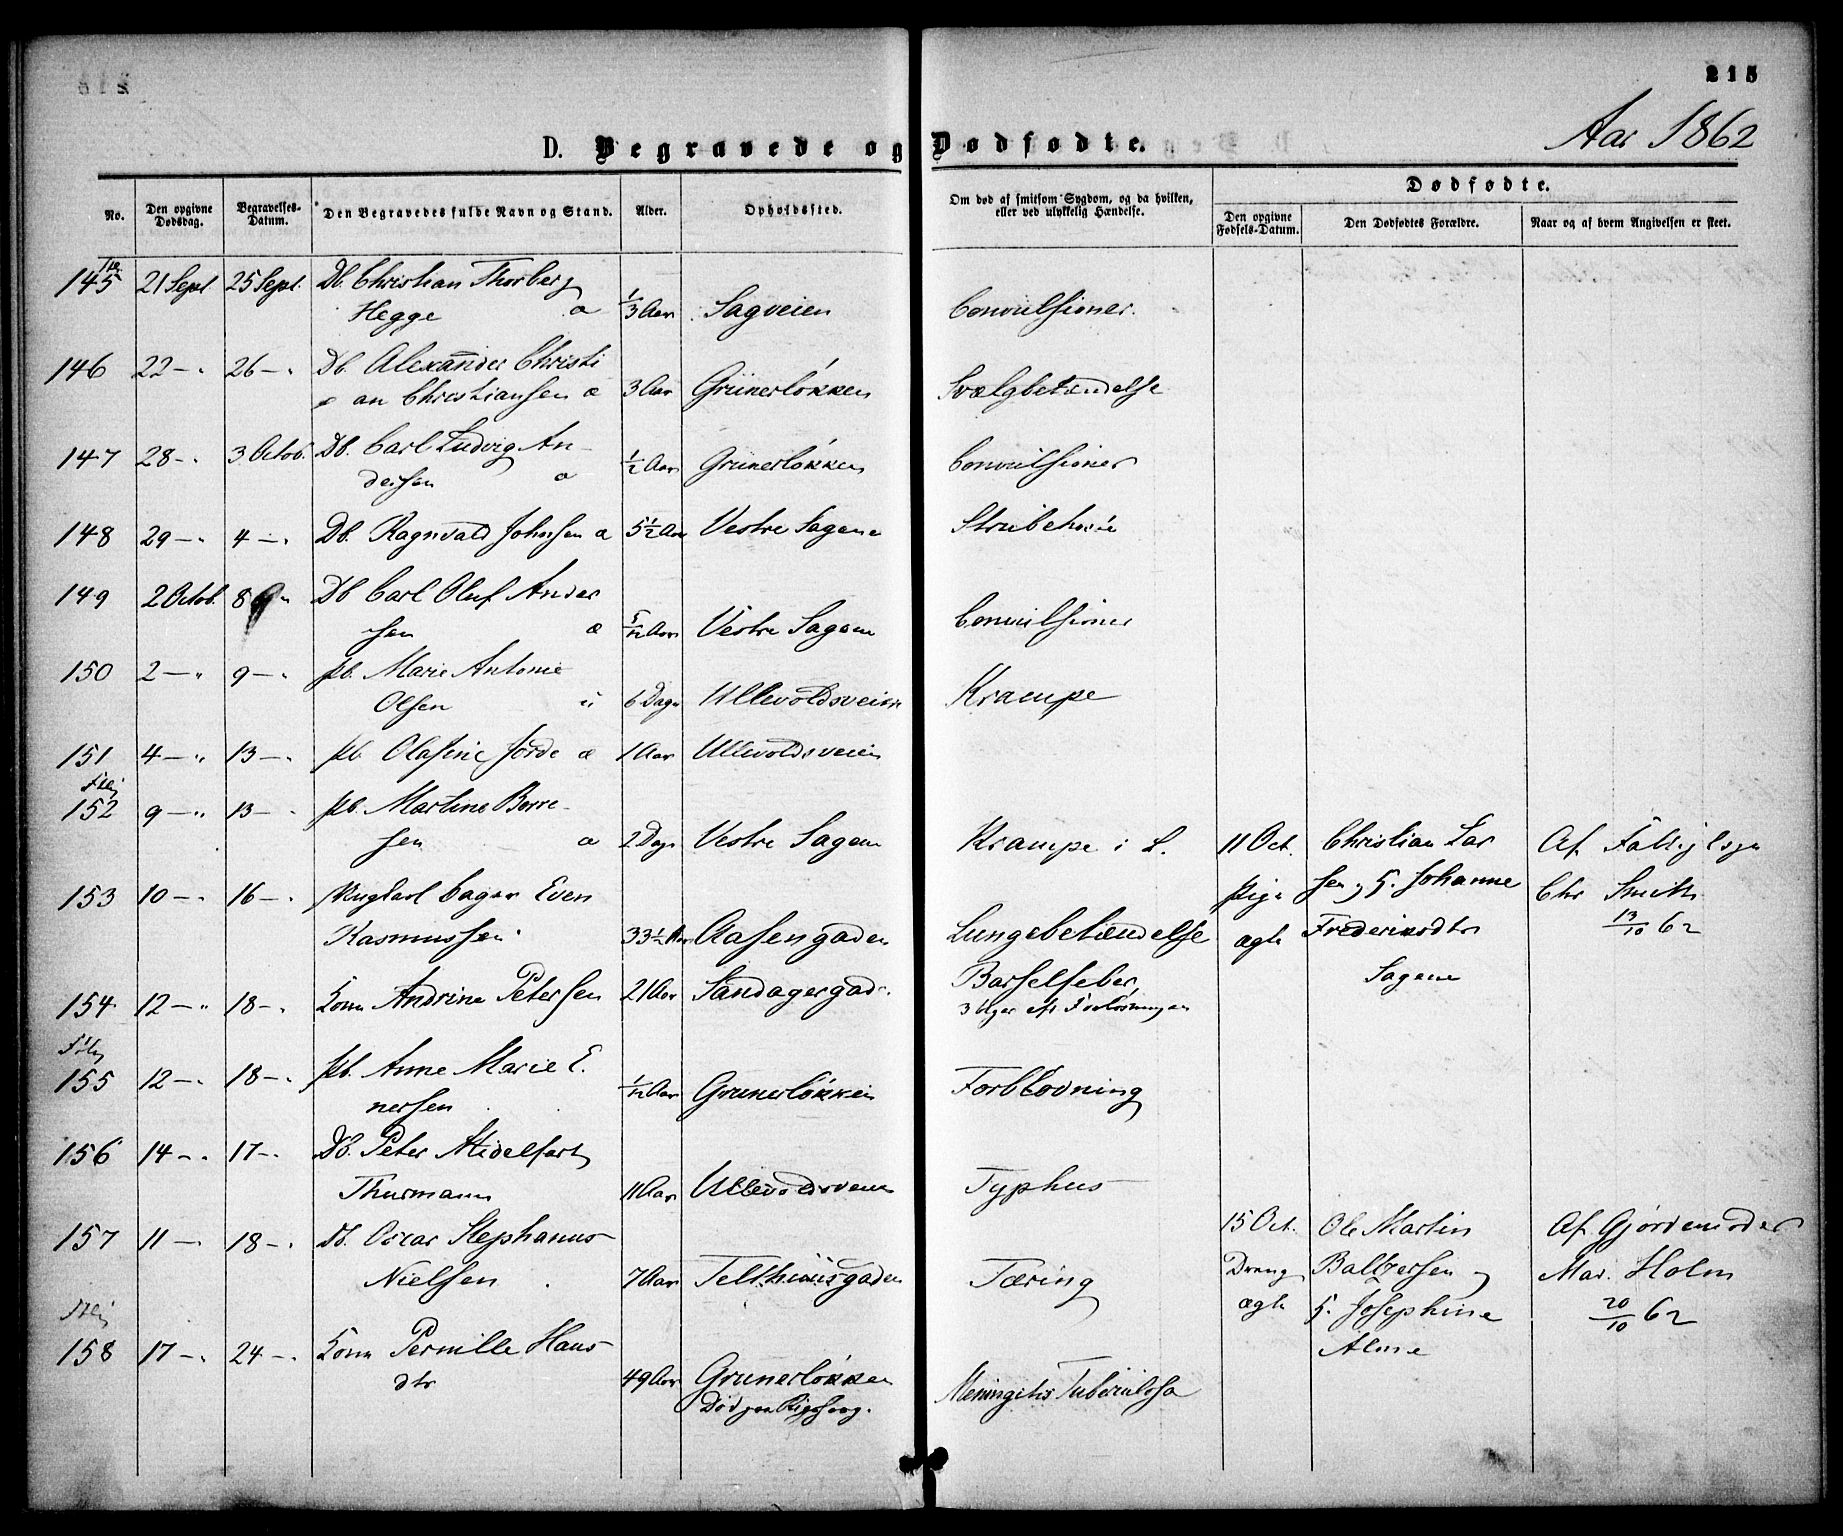 215
Aar 1862
D. Begravede og Dødfødte.
No.
Den opgivne Dødsdag.
Begravelses-Datum.
Den Begravedes fulde Navn og Stand.
Alder.
Opholdssted.
Om død af smitsom Sygdom, og da hvilken, eller ved ulykkelig Hændelse.
Dødfødte.
Den opgivne Fødsels-Datum.
Den Dødfødtes Forældre.
Naar og af hvem Angivelsen er skeet.
145 21 Sept. 25 Sept. Db. Christian Thorberg
Hegge æ 1/3 Aar Sagveien Convulsioner.
146 22 — " 26 — " Db. Alexander Christi
an Christiansen æ 3 Aar Grünerløkken Svælgbetændelse
147 28 — " 3 Octob. Db. Carl Ludvig An-
dersen æ 1/2 Aar Grünerløkken Convulsioner
148 29 — " 4 — " Db. Ragnvald Johnsen æ 5 1/2 Aar Vestre Sagene Strubehoste
149 2 Octob. 8 — " Db Carl Oluf Ander
sen æ 5/12 Aar Vestre Sagene Convulsioner
150 2 — " 9 — " Pb. Marie Antonie
Olsen u 6 Dage Ullevoldsveien Krampe
151 4 — " 13 — " Pb. Olafine Jorde æ 1 Aar Ullevoldsveien
152 9 — " 13 — " Pb. Martine Borre-
sen æ 2 Dage Vestre Sagene Krampe i L. 11 Oct. Christian Lar
Pige sen, H. Johanne Chr Smith
153 10 — " 16 — " Even
Rasmussen 33 1/2 Aar Aasengaden Lungebetændelse ægte Fredriksdtr 13/10 62
Sagene
154 12 — " 18 — " Kone Andrine Petersen 21 Aar Sandagergad. Barselfeber,
3 Uger ef. Forløsningen
155 12 — " 18 — " Pb. Anne Marie E.
nersen 1/12 Aar Grünerløkken Forblodning
156 14 — " 17 — " Db. Peter Midelfart
Thurmann 11 Aar Ullevoldsveien Typhus
157 11 — " 18 — " Db. Oscar Stephanus
Nielsen 7 Aar Telthuusgaden Tæring
15 Oct. Ole Martin Af Gjordemoder
Dreng Baltzersen og Mad. Holm
ægte H. Josephine 20/10 62
Alme
158 17 — " 24 — " Kone Pernille Hans-
dtr 49 Aar Grünerløkken Meningitis Tuberculosa
Død paa Rigshosp.